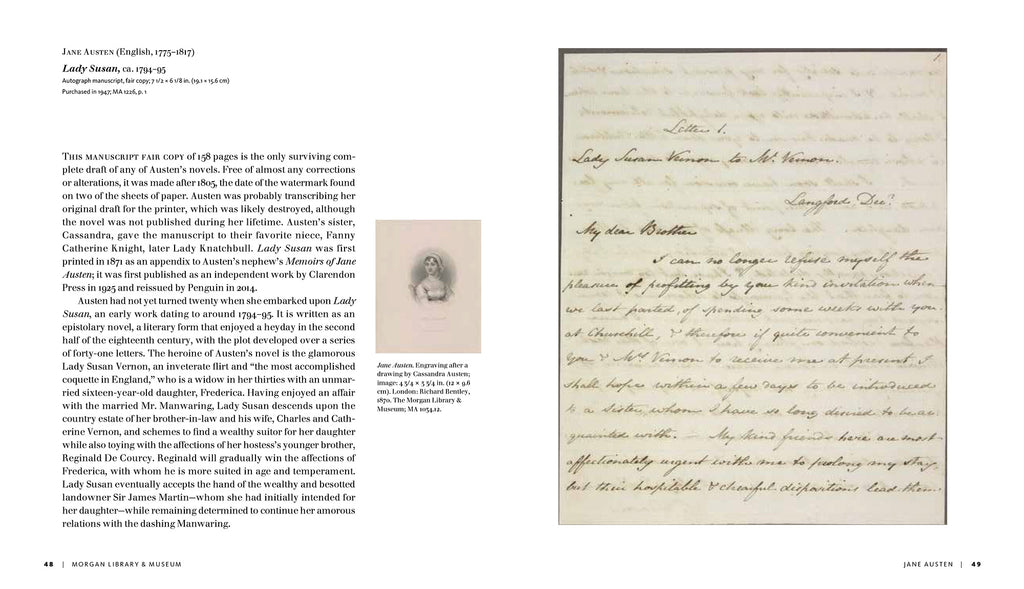 JANE AUSTEN (English, 1775–1817)
Lady Susan, ca. 1794–95
Autograph manuscript, fair copy; 7 1/2 × 6 1/8 in. (19.1 × 15.6 cm)
Purchased in 1947; MA 1226, p. 1
THIS MANUSCRIPT FAIR COPY of 158 pages is the only surviving com-
plete draft of any of Austen's novels. Free of almost any corrections
or alterations, it was made after 1805, the date of the watermark found
on two of the sheets of paper. Austen was probably transcribing her
original draft for the printer, which was likely destroyed, although
the novel was not published during her lifetime. Austen's sister,
Cassandra, gave the manuscript to their favorite niece, Fanny
Catherine Knight, later Lady Knatchbull. Lady Susan was first
printed in 1871 as an appendix to Austen's nephew's Memoirs of Jane
Austen; it was first published as an independent work by Clarendon
Press in 1925 and reissued by Penguin in 2014.
Austen had not yet turned twenty when she embarked upon Lady
Susan, an early work dating to around 1794–95. It is written as an
epistolary novel, a literary form that enjoyed a heyday in the second
half of the eighteenth century, with the plot developed over a series
of forty-one letters. The heroine of Austen's novel is the glamorous
Lady Susan Vernon, an inveterate flirt and "the most accomplished
coquette in England," who is a widow in her thirties with an unmar-
ried sixteen-year-old daughter, Frederica. Having enjoyed an affair
with the married Mr. Manwaring, Lady Susan descends upon the
country estate of her brother-in-law and his wife, Charles and Cath-
erine Vernon, and schemes to find a wealthy suitor for her daughter
while also toying with the affections of her hostess's younger brother,
Reginald De Courcy. Reginald will gradually win the affections of
Frederica, with whom he is more suited in age and temperament.
Lady Susan eventually accepts the hand of the wealthy and besotted
landowner Sir James Martin—whom she had initially intended for
her daughter—while remaining determined to continue her amorous
relations with the dashing Manwaring.
Jane Austen. Engraving after a
drawing by Cassandra Austen;
image: 4 3/4 × 3 3/4 in. (12 × 9.6
cm). London: Richard Bentley,
1870. The Morgan Library &
Museum; MA 1034.12.
1.
Letter 1.
Lady Susan Vernon to Mr. Vernon.
Langford, Decr.
My dear Brother
I can no longer refuse myself the
pleasure of profitting by your kind invitation when
we last parted, of spending some weeks with you
at Churchill, & therefore if quite convenient to
you & Mrs. Vernon to receive me at present, I
shall hope within a few days to be introduced
to a Sister whom I have so long desired to be ac-
quainted with. — My kind friends here are most
affectionately urgent with me to prolong my stay,
but their hospitable & chearful dispositions lead them
48 | MORGAN LIBRARY & MUSEUM
JANE AUSTEN | 49